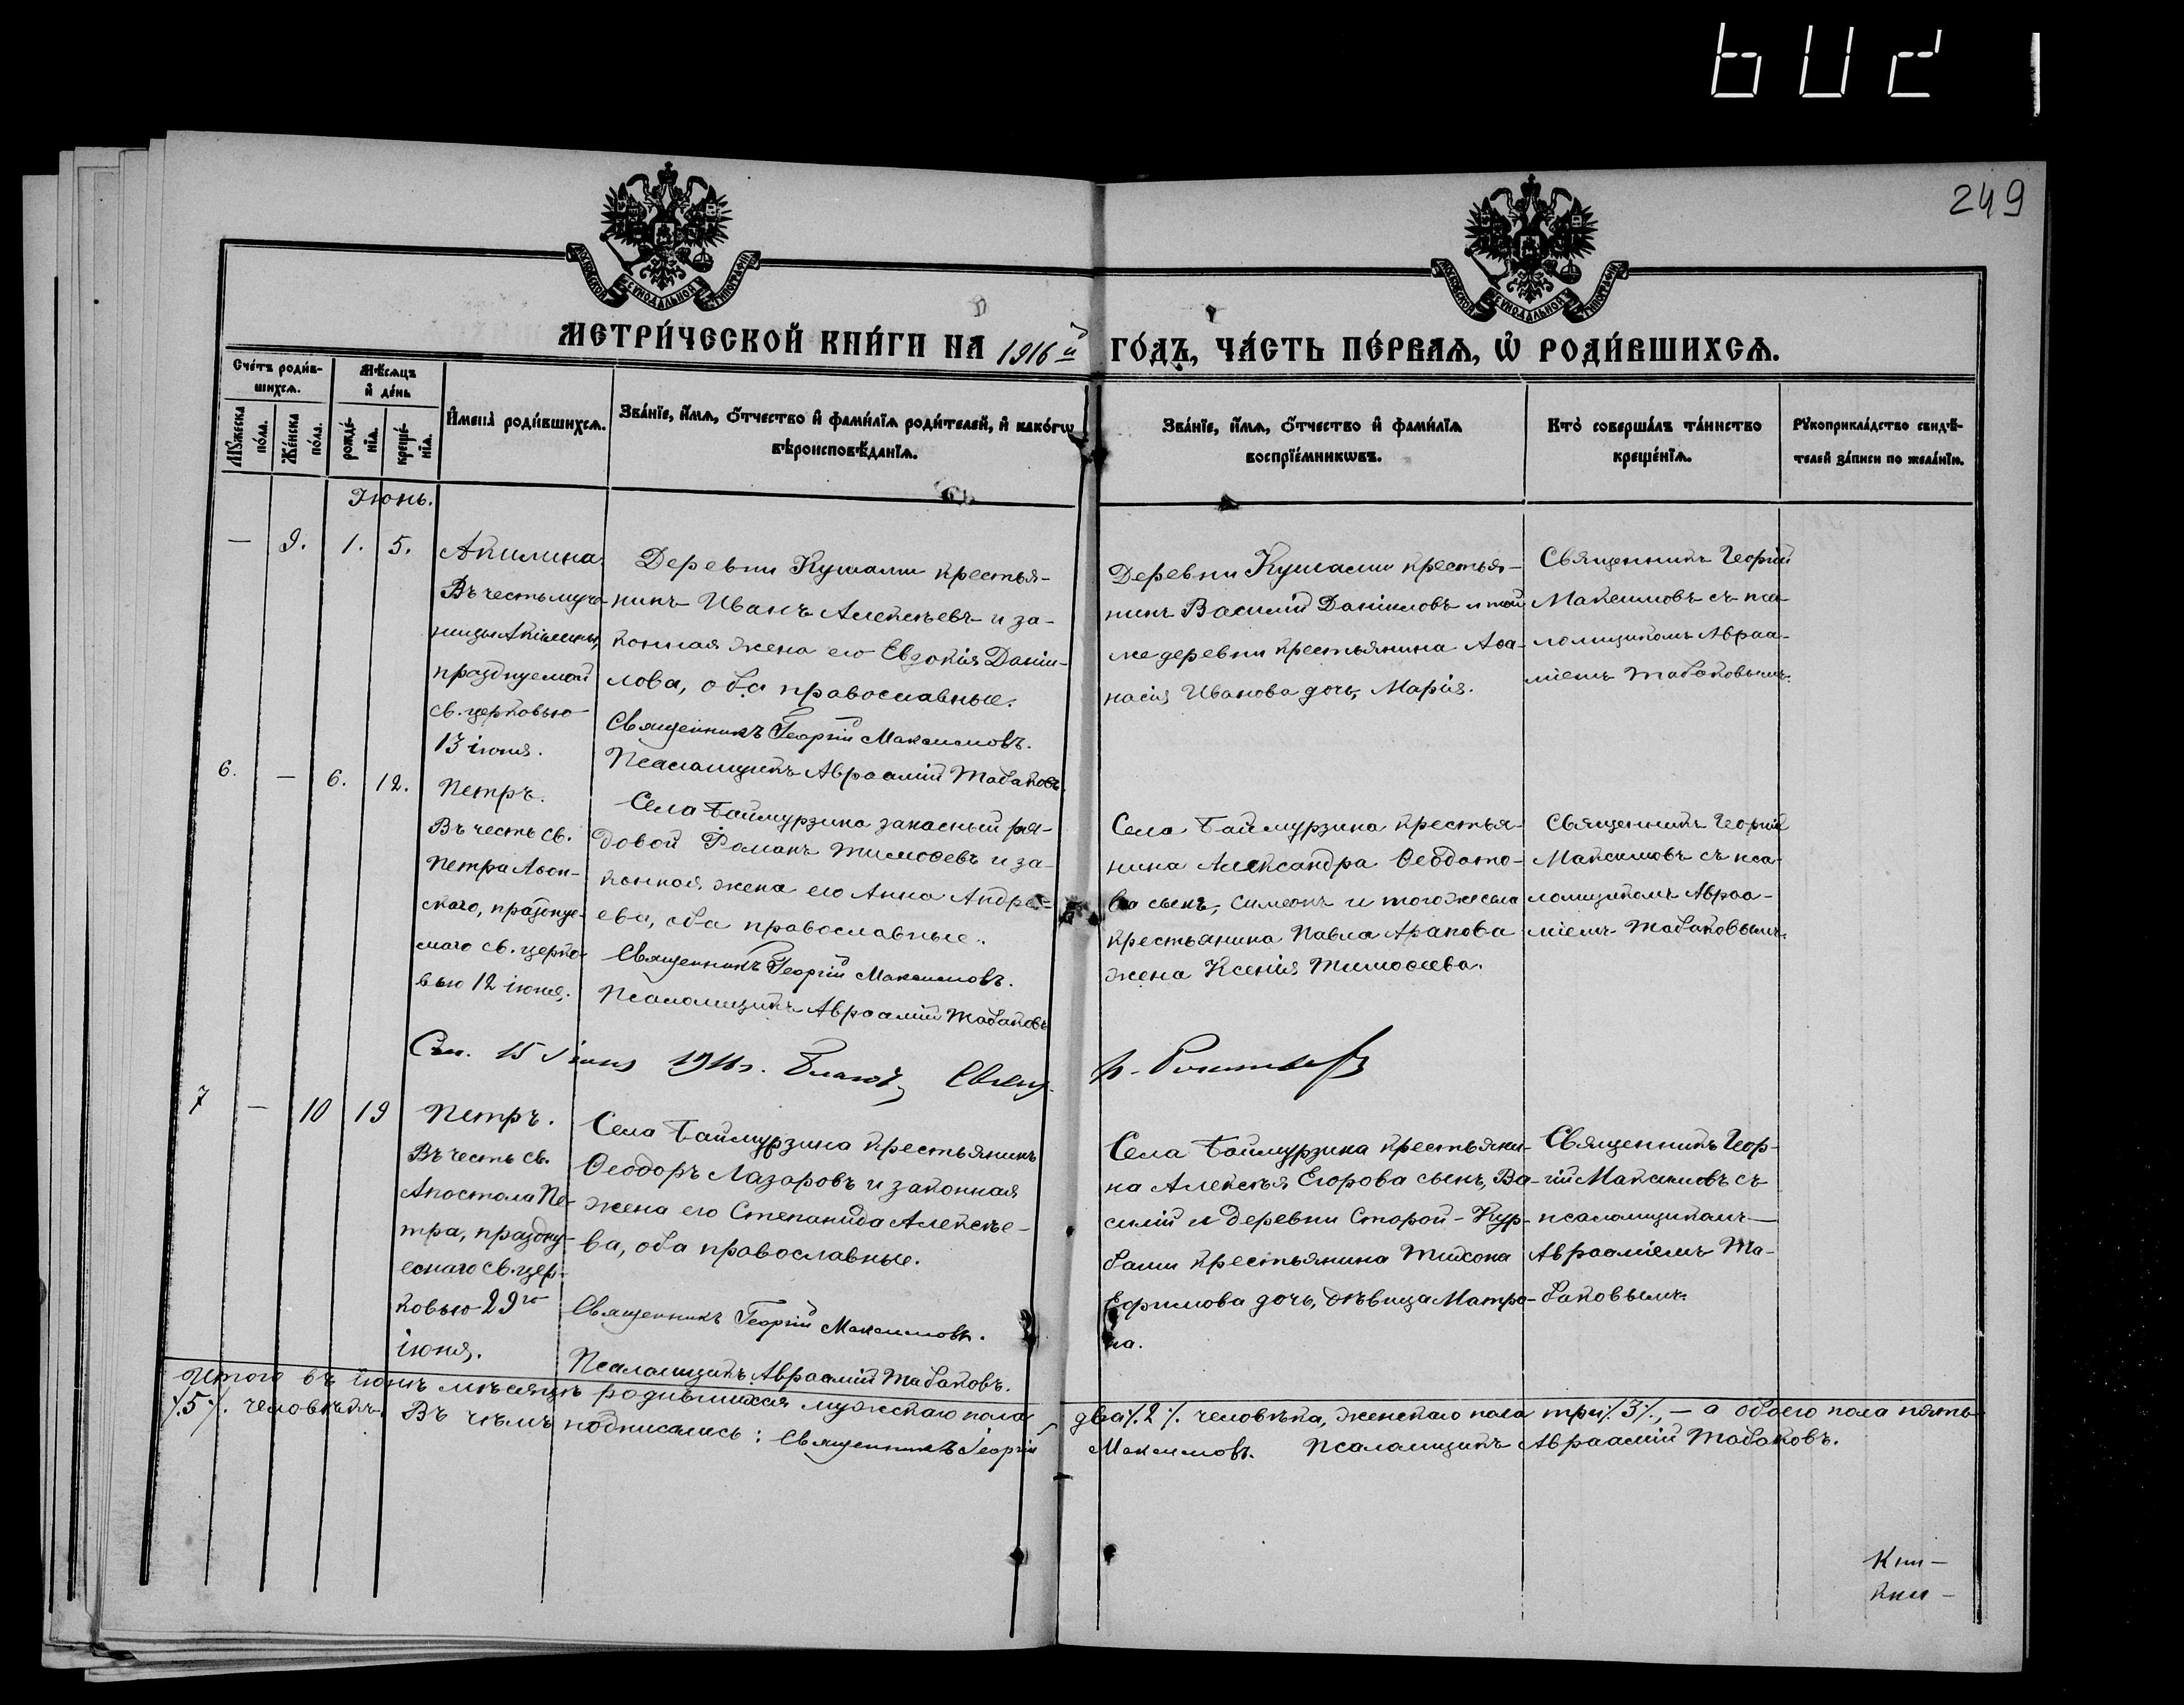 249
МОСКОВСКОЙ СѴНОДАЛЬНОЙ ТИПОГРАФІИ
МОСКОВСКОЙ СѴНОДАЛЬНОЙ ТИПОГРАФІИ
МЕТРИ́ЧЕСКОЙ КНИ́ГИ НА 1916й ГО́ДЪ, ЧА́СТЬ ПЕ́РВАЯ, Ѡ РОДИ́ВШИХСЯ.
Сче́тъ роди́в-
шихся.
Мѣ́сяцъ
и де́нь
Мꙋ́жеска
по́ла.
Же́нска
по́ла.
рожде́-
нїя.
креще́-
нїя.
Имена̀ роди́вшихся.
Зва́нїе, и́мя, о́тчество и фами́лїя роди́телей, и како́гѡ
вѣроисповѣ́данїя.
Зва́нїе, и́мя, о́тчество и фами́лїя
воспрїе́мникѡвъ.
Кто̀ соверша́лъ та́инство
креще́нїя.
Рꙋкоприкла́дство свидѣ́-
телей за́писи по жела́нїю.
Іюнь.
— 9. 1. 5.
Акилина.
Въ честь муче-
ницы Акилины,
празднуемой
св. церковью
13 іюня.
Деревни Кушали крестья-
нинъ Иванъ Алексѣевъ и за-
конная жена его Евдокія Даніи-
лова, оба православные.
Священникъ Георгій Максимовъ.
Псаломщикъ Авраамій Табаковъ.
Деревни Кушали крестья-
нинъ Василій Даніиловъ и той
же деревни крестьянина Аѳа-
насія Иванова дочь, Марія.
Священникъ Георгій
Максимовъ съ пса-
ломщикомъ Авраа-
міемъ Табаковымъ.
6. — 6. 12.
Петръ.
Въ честь св.
Петра Аѳон-
скаго, празднуе-
маго св. церко-
вью 12 іюня.
Села Баймурзина запасный ря-
довой Романъ Тимоѳеевъ и за-
конная жена его Анна Андре-
ева, оба православные.
Священникъ Георгій Максимовъ.
Псаломщикъ Авраамій Табаковъ
Села Баймурзина крестья-
нина Александра Ѳеодото-
ва сынъ, Симеонъ и того же села
крестьянина Павла Арапова
жена Ксенія Тимоѳеева.
Священникъ Георгій
Максимовъ съ пса-
ломщикомъ Авраа-
міемъ Табаковымъ.
См. 15 Іюня 1916 г. Благоч. Свящ.
7 — 10 19
Петръ.
Въ честь св.
Апостола Пе-
тра, праздну-
емаго св. цер-
ковью 29го
іюня.
Села Баймурзина крестьянинъ
Ѳеодоръ Лазаровъ и законная
жена его Степанида Алексѣе-
ва, оба православные.
Священникъ Георгій Максимовъ.
Псаломщикъ Авраамій Табаковъ.
Села Баймурзина крестьяни-
на Алексѣя Егорова сынъ, Ва-
силій и деревни Старой-Кур-
баши крестьянина Тихона
Ефимова дочь, дѣвица Матро-
на.
Священникъ Геор-
гій Максимовъ съ
псаломщикомъ
Аврааміемъ Та-
баковымъ.
Итого въ іюнѣ мѣсяцѣ родившихся мужскаго пола два ٪ 2 ٪ человѣка, женскаго пола три ٪ 3 ٪, — а обоего пола пять
٪ 5 ٪ человѣкъ. Въ чемъ подписались: Священникъ Георгій Максимовъ. Псаломщикъ Авраамій Табаковъ.